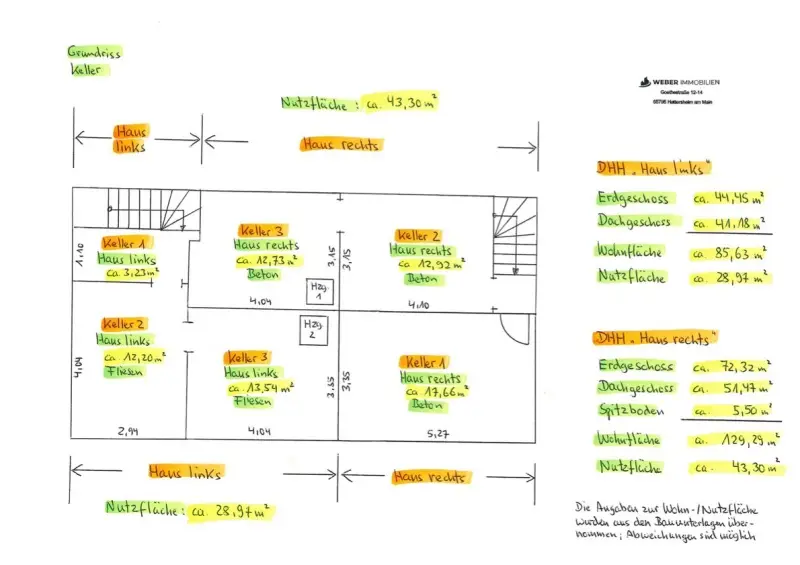 Grundriss
Keller
WEBER IMMOBILIEN
Goethestraße 12-14
65795 Hattersheim am Main
Nutzfläche : ca. 43,30 m²
Haus
links
Haus rechts
Keller 1
Haus links
ca. 3,23 m²
1,10
Keller 3
Haus rechts
ca. 12,73 m²
Beton
3,15
3,15
Keller 2
Haus rechts
ca. 12,92 m²
Beton
Hzg.
1
4,04
4,10
Keller 2
Haus links
ca. 12,20 m²
Fliesen
4,04
2,94
Hzg.
2
Keller 3
Haus links
ca. 13,54 m²
Fliesen
3,35
3,35
4,04
Keller 1
Haus rechts
ca. 17,66 m²
Beton
5,27
Haus links
Haus rechts
Nutzfläche : ca. 28,97 m²
DHH „Haus links“
Erdgeschoss ca. 44,45 m²
Dachgeschoss ca. 41,18 m²
Wohnfläche ca. 85,63 m²
Nutzfläche ca. 28,97 m²
DHH „Haus rechts“
Erdgeschoss ca. 72,32 m²
Dachgeschoss ca. 51,47 m²
Spitzboden ca. 5,50 m²
Wohnfläche ca. 129,29 m²
Nutzfläche ca. 43,30 m²
Die Angaben zur Wohn-/Nutzfläche
wurden aus den Bauunterlagen über-
nommen; Abweichungen sind möglich